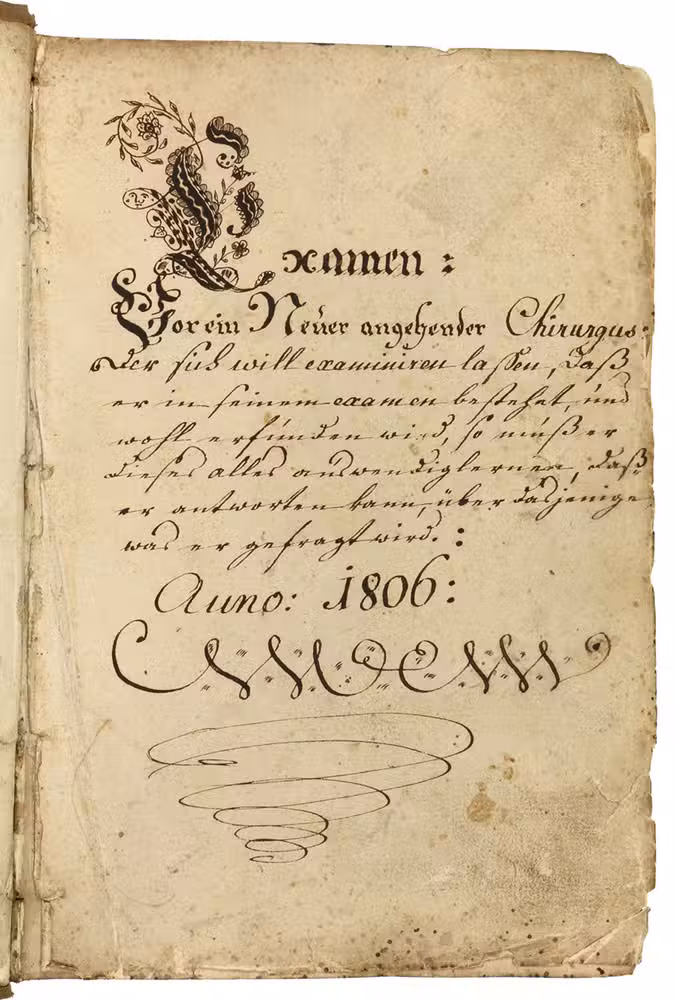 Examen :
Vor ein Neüer angehender Chirurgus :
Der sich will examiniren lassen, daß
er in seinem examen bestehet, und
wohl erfunden wird, so muß er
dieses alles auswendig lernen, daß
er antworten kann, über dasjenige
was er gefragt wird. :
Anno: 1806: